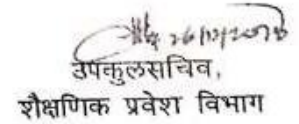 26/12/2018
उपकुलसचिव,
शैक्षणिक प्रवेश विभाग